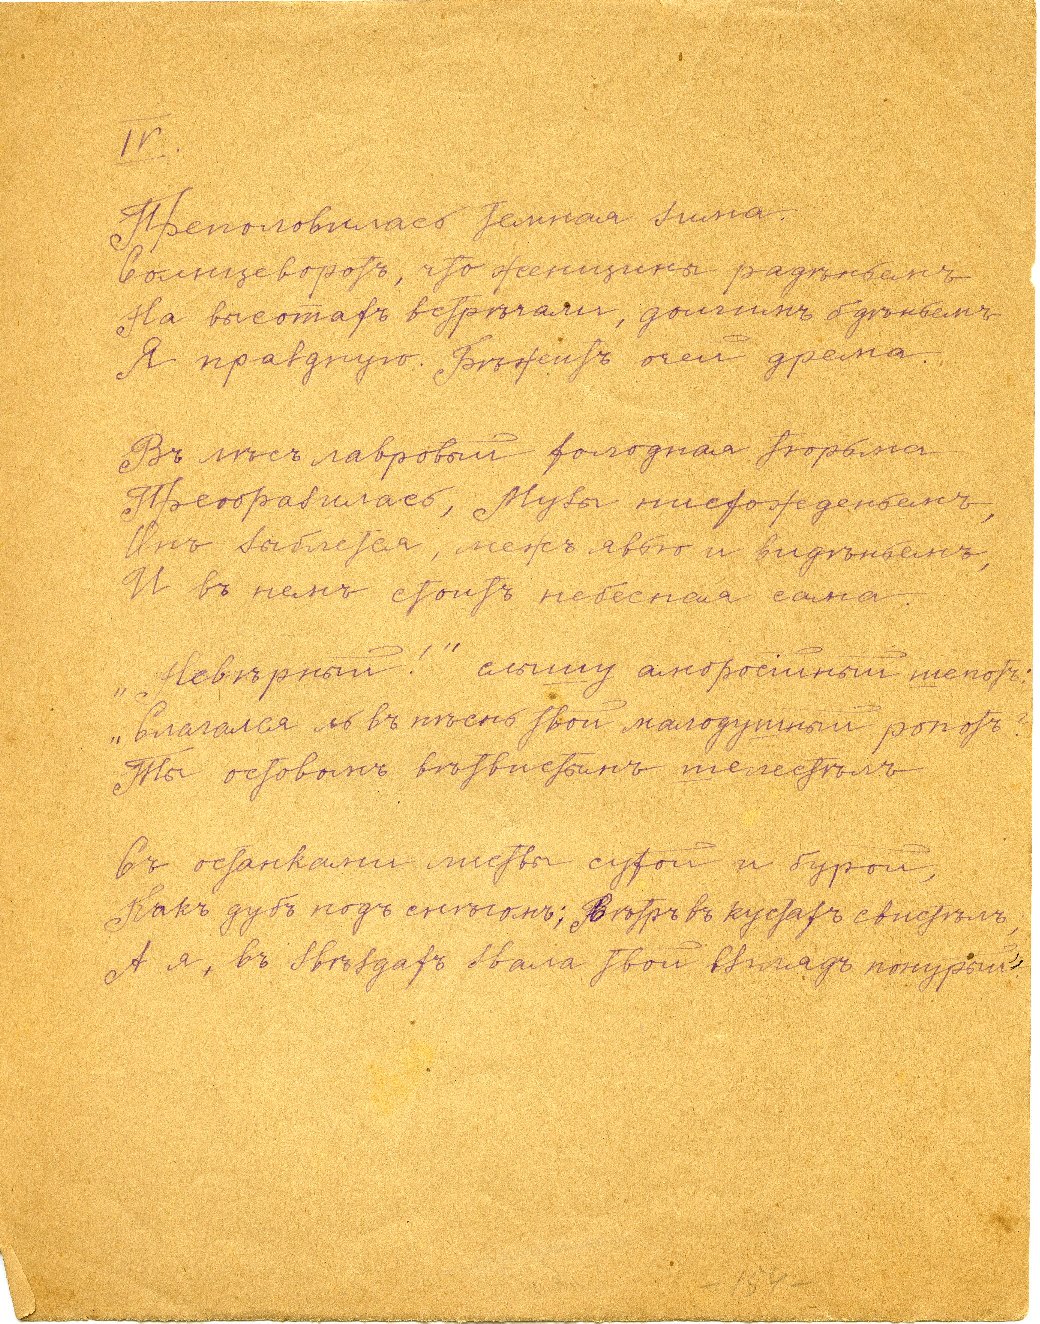 IV.
Преполовилась темная зима.
Солнцеворотъ, что женщины радѣньемъ
На высотахъ встрѣчали, долгимъ бдѣньемъ
Я праздную. Бѣжитъ очей дрема.
Въ лѣсъ лавровый холодная тюрьма
Преобразилась, Музы нисхожденьемъ,
Онъ зыблется, межъ явью и видѣньемъ,
И въ немъ стоитъ небесная сама.
„Невѣрный!" слышу амбросійный шепотъ:
„Слагался ль въ пѣснь твой малодушный ропотъ?
Ты остовомъ вѣтвистымъ шелестѣлъ
Съ останками листвы сухой и бурой,
Какъ дубъ подъ снѣгомъ; Вѣтръ въ кустахъ свистѣлъ,
А я, въ звѣздахъ звала твой взглядъ понурый"
- 154 -